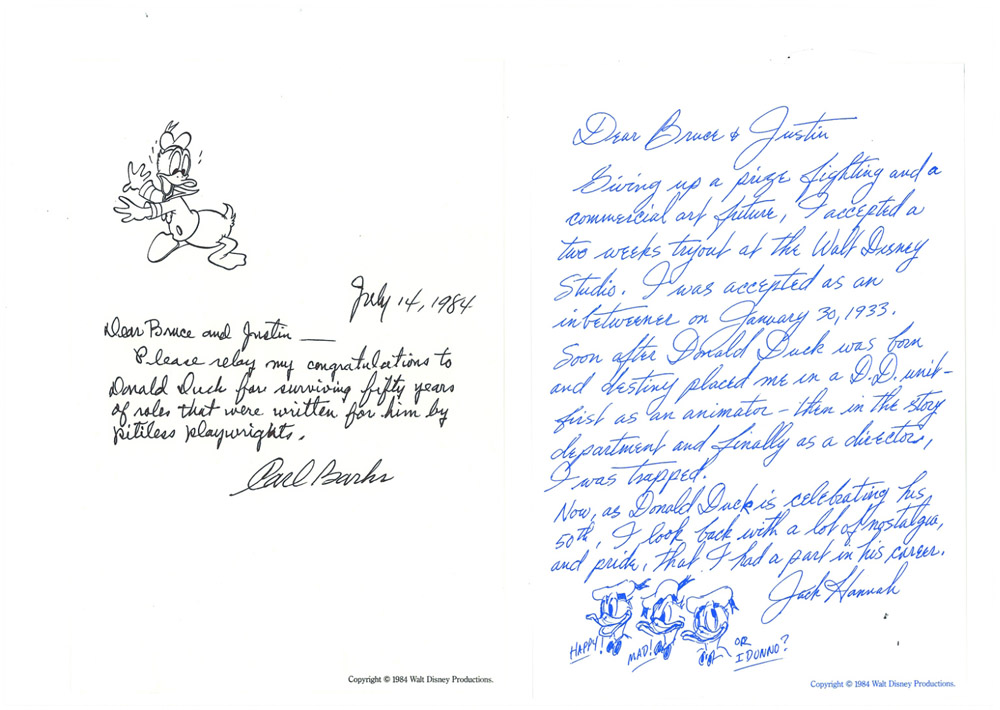 July 14, 1984
Dear Bruce and Justin —
Please relay my congratulations to
Donald Duck for surviving fifty years
of roles that were written for him by
pitiless playwrights.
Carl Barks
Copyright © 1984 Walt Disney Productions.
Dear Bruce & Justin
Giving up a prize fighting and a
commercial art future, I accepted a
two weeks tryout at the Walt Disney
Studio. I was accepted as an
inbetweener on January 30, 1933.
Soon after Donald Duck was born
and destiny placed me in a D.D. unit-
first as an animator - then in the story
department and finally as a director,
I was trapped.
Now, as Donald Duck is celebrating his
50th, I look back with a lot of nostalgia,
and pride, that I had a part in his career.
Jack Hannah
HAPPY!
MAD!
OR
I DONNO?
Copyright © 1984 Walt Disney Productions.